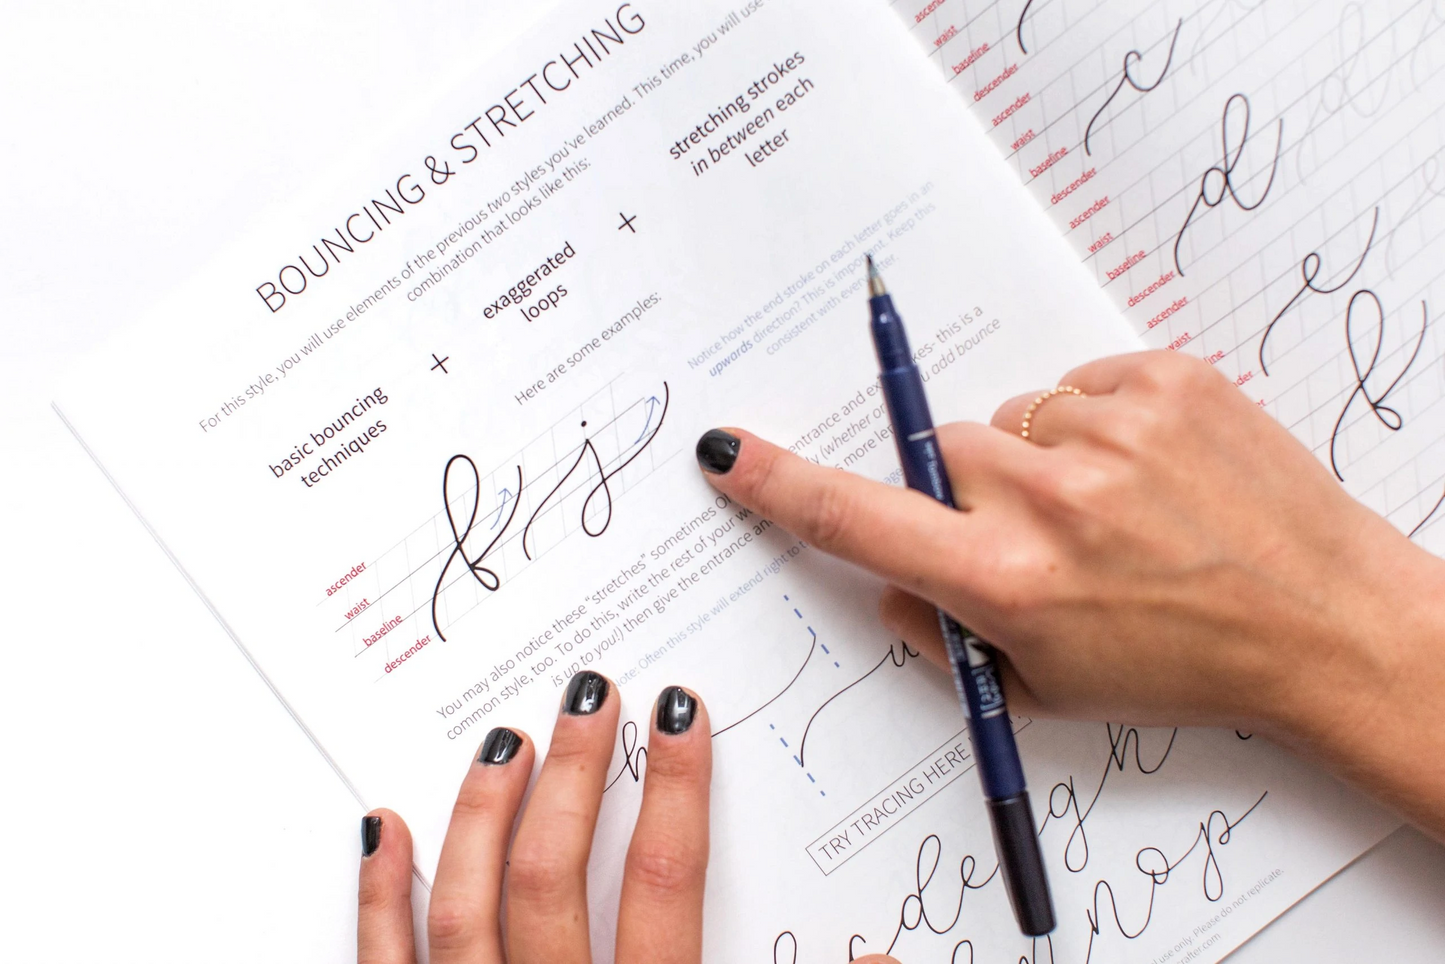 BOUNCING & STRETCHING
For this style, you will use elements of the previous two styles you've learned. This time, you will use
combination that looks like this:
basic bouncing
techniques
+
exaggerated
loops
+
stretching strokes
in between each
letter
Here are some examples:
Notice how the end stroke on each letter goes in an
upwards direction? This is important. Keep this
consistent with every letter.
ascender
waist
baseline
descender
b j
You may also notice these "stretches" sometimes
entrance and ex kes- this is a
common style, too. To do this, write the rest of your
(whether or you add bounce
is up to you!) then give the entrance and
more
Note: Often this style will extend right to t
h
u
TRY TRACING HERE
c d e g h
n o p
use only. Please do not replicate.
crafter.com
ascender
waist
baseline
descender
c
ascender
waist
baseline
descender
d
ascender
waist
baseline
descender
e
ascender
waist
b